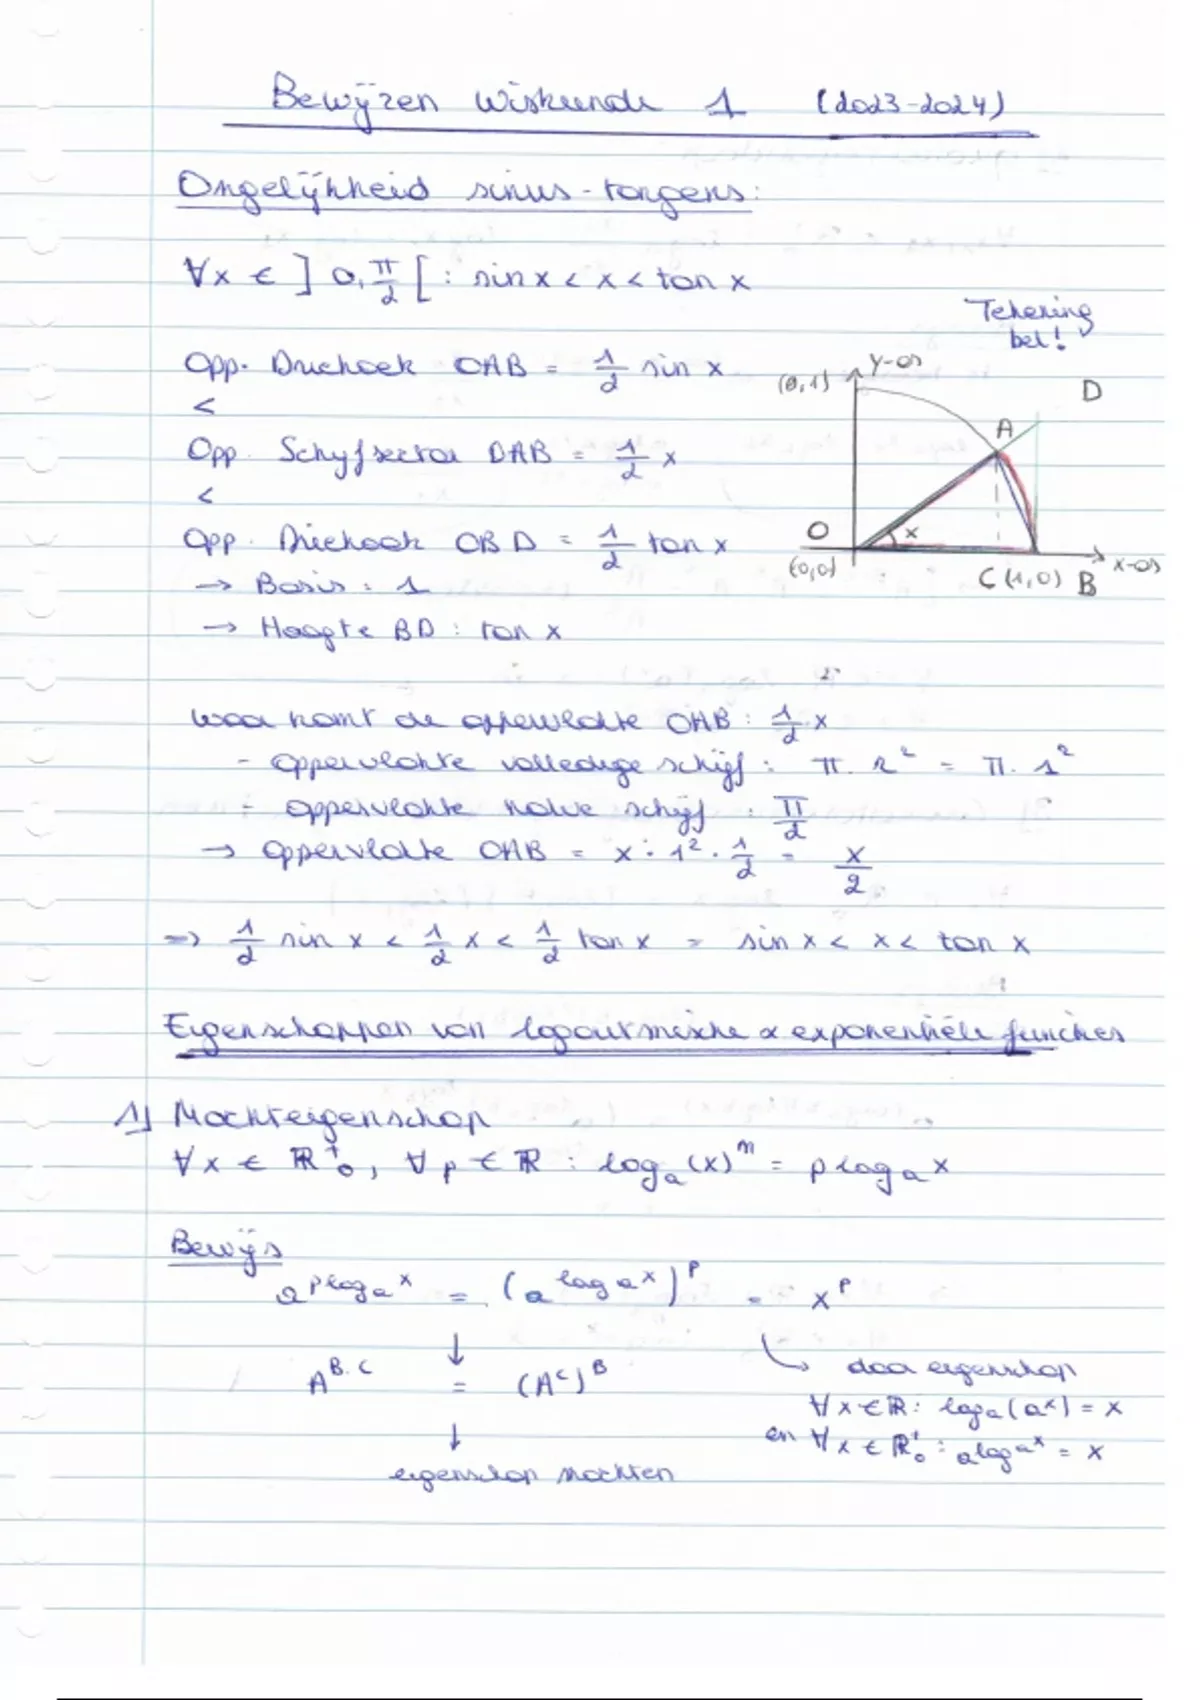 Bewijzen Wiskunde 1 (2023-2024)
Ongelijkheid sinus-tangens:
∀x ∈ ]0, π/2[ : sin x < x < tan x
Tekening
bel!
Opp. Driehoek OAB = 1/2 sin x
<
Opp. Schijfsector OAB = 1/2 x
<
Opp. Driehoek OBD = 1/2 tan x
→ Basis : 1
→ Hoogte BD : tan x
(0,1)
y-as
D
A
x
O
(0,0)
C (1,0) B
x-as
Waar komt de oppervlakte OAB : 1/2 x
- oppervlakte volledige schijf : π . r² = π . 1²
- oppervlakte halve schijf : π/2
→ oppervlakte OAB = x . 1² . 1/2 = x/2
=> 1/2 sin x < 1/2 x < 1/2 tan x = sin x < x < tan x
Eigenschappen van logaritmische & exponentiële functies
1) Machteigenschap
∀x ∈ ℝ⁺₀, ∀p ∈ ℝ : logₐ(x)ᵐ = p logₐ x
Bewijs
a^(p logₐ x) = (a^(logₐ x))^p = x^p
↓
A^(B.C) = (A^C)^B
↳ door eigenschap
∀x ∈ ℝ : logₐ(a^x) = x
en ∀x ∈ ℝ⁺₀ : a^(logₐ x) = x
↓
eigenschap machten